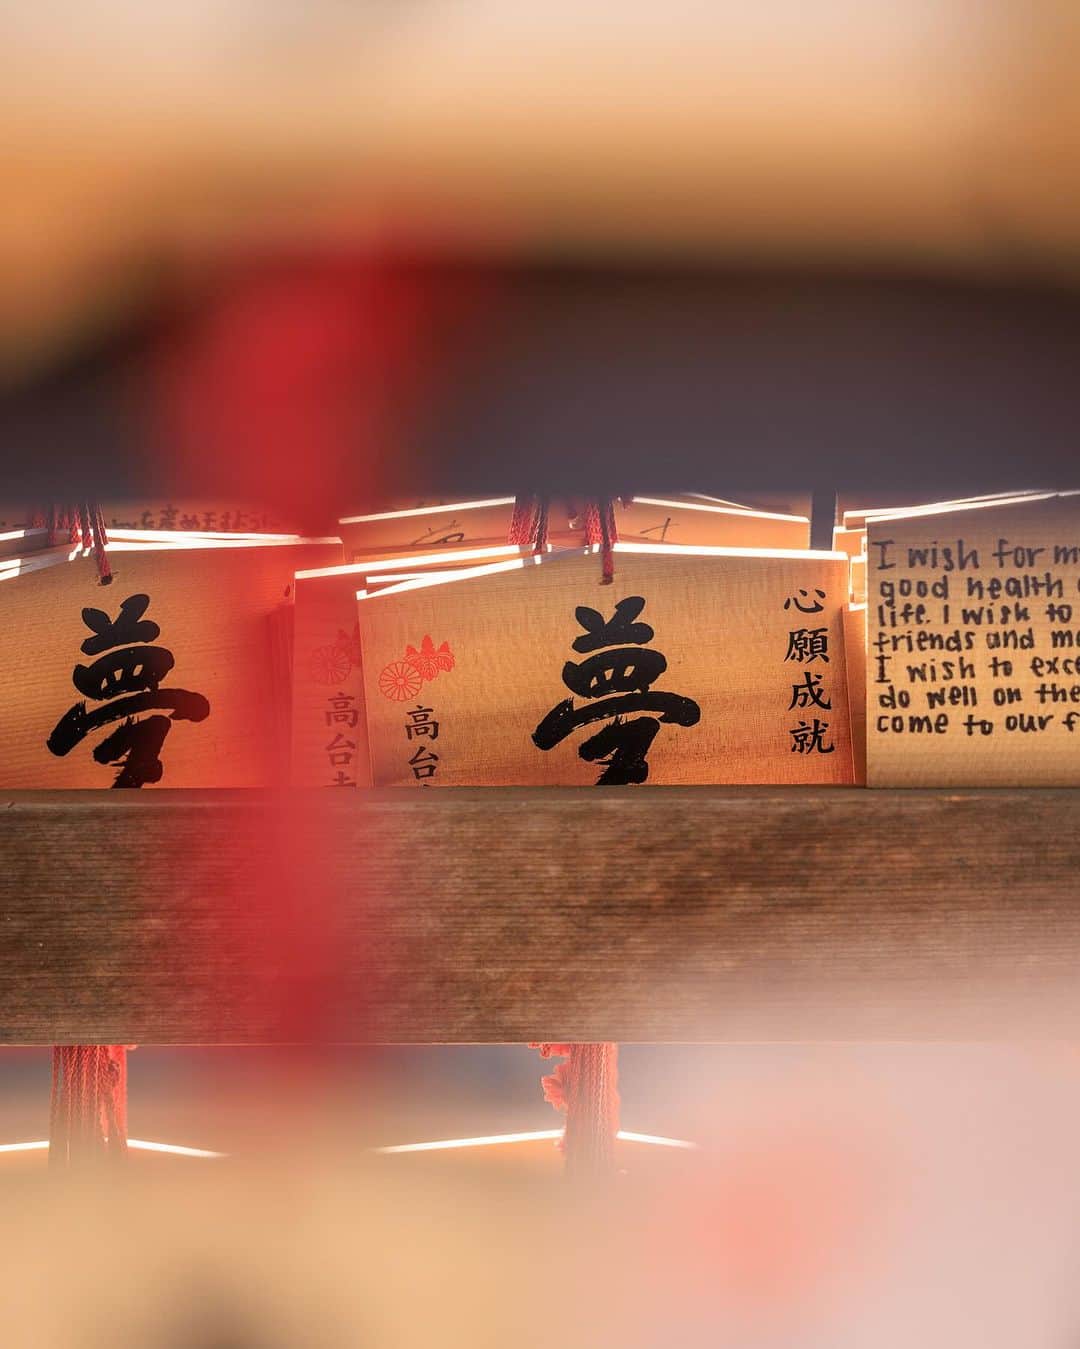 夢
高台
夢
心願成就
高台
I wish for
good health
life. I wish to
friends and
I wish to
do well on the
come to our